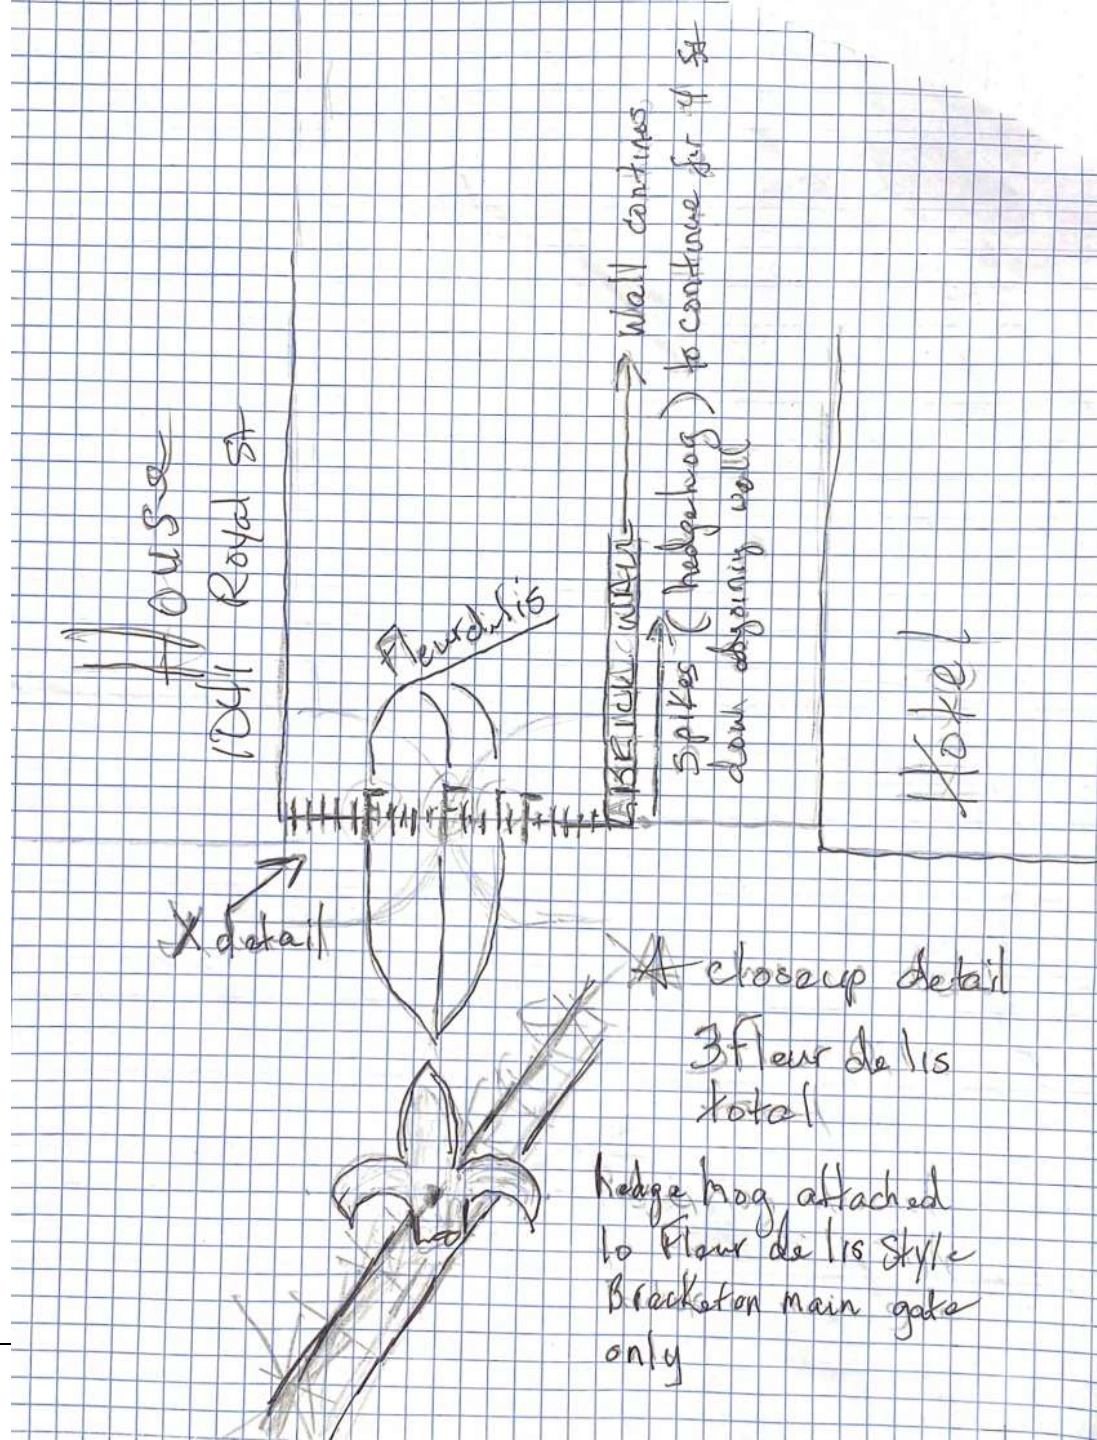 House
1041 Royal St
Fleurdilis
BRICK WALL
Wall contines
Spikes (hedgehog) to continue for 4 ft
down adjoining wall
Hotel
X detail
closeup detail
3 fleur de lis
total
hedge hog attached
to Fleur de lis Style
Bracket on main gate
only